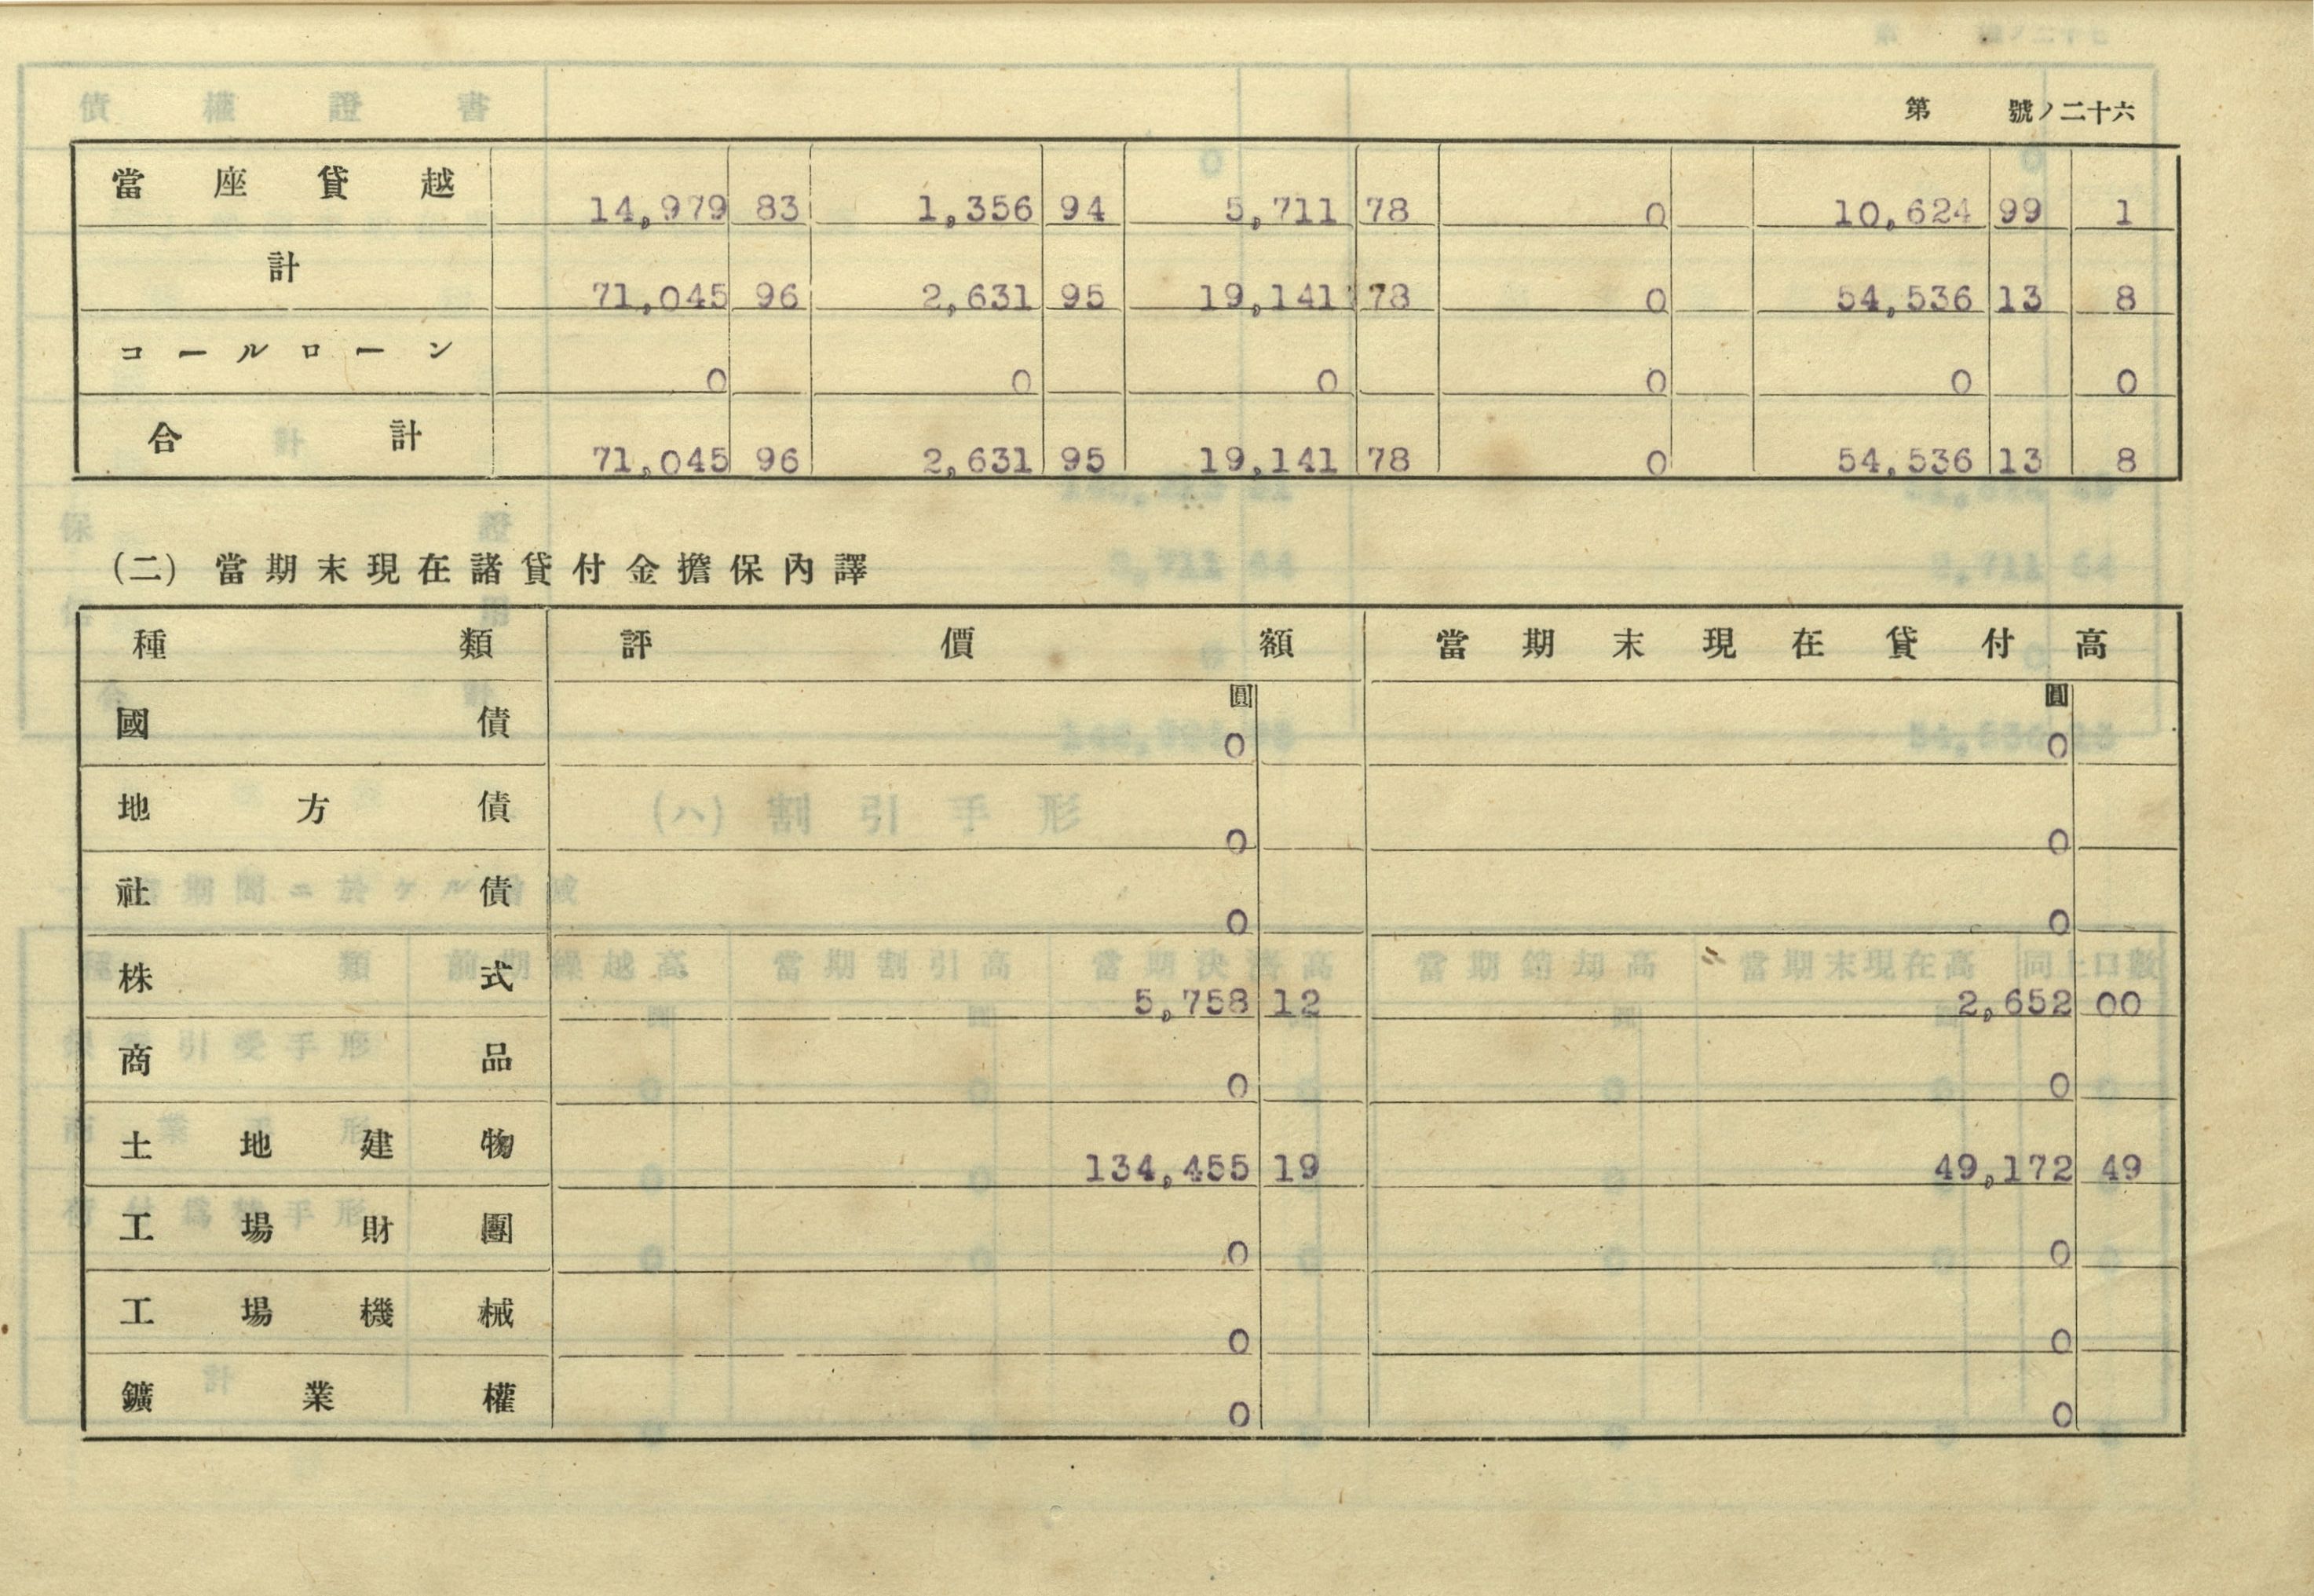 第　　號ノ二十六
當座貸越 14,979 83 1,356 94 5,711 78 0 10,624 99 1
計 71,045 96 2,631 95 19,141 78 0 54,536 13 8
コールローン 0 0 0 0 0 0
合計 71,045 96 2,631 95 19,141 78 0 54,536 13 8
(二) 當期末現在諸貸付金擔保內譯
種類 評價額 當期末現在貸付高
圓 圓
國債 0 0
地方債 0 0
社債 0 0
株式 5,758 12 2,652 00
商品 0 0
土地建物 134,455 19 49,172 49
工場財團 0 0
工場機械 0 0
鑛業權 0 0